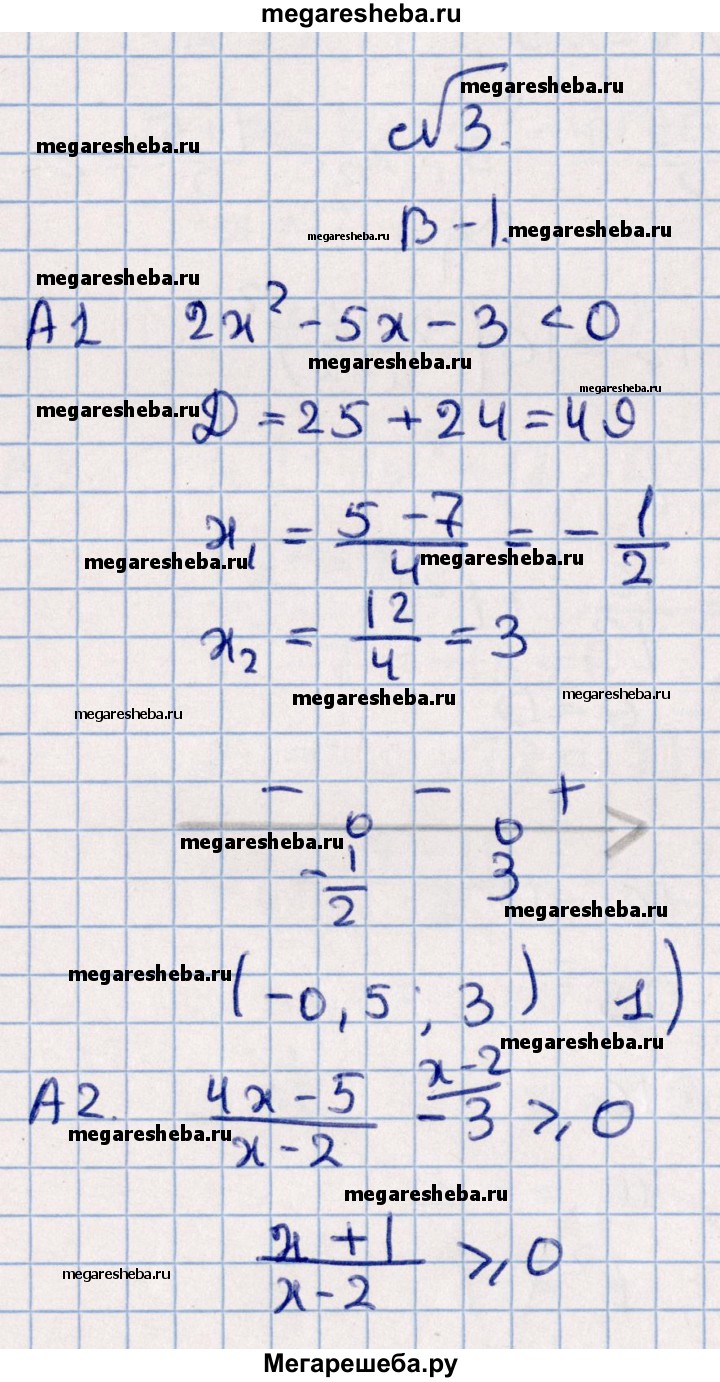 megaresheba.ru
megaresheba.ru
c√3.
megaresheba.ru
В-1.
megaresheba.ru megaresheba.ru
megaresheba.ru
А1 2x² - 5x - 3 < 0
megaresheba.ru
megaresheba.ru
megaresheba.ru
Д = 25 + 24 = 49
x₁ = (5 - 7)/4 = - 1/2
megaresheba.ru megaresheba.ru
x₂ = 12/4 = 3
megaresheba.ru megaresheba.ru
megaresheba.ru
- - +
megaresheba.ru
-1/2 3
megaresheba.ru
megaresheba.ru
(-0,5; 3) 1)
megaresheba.ru
А2. (4x - 5)/(x - 2) - 3 (x - 2) ≥ 0
megaresheba.ru
megaresheba.ru
(x + 1)/(x - 2) ≥ 0
megaresheba.ru
Мегарешеба.ру